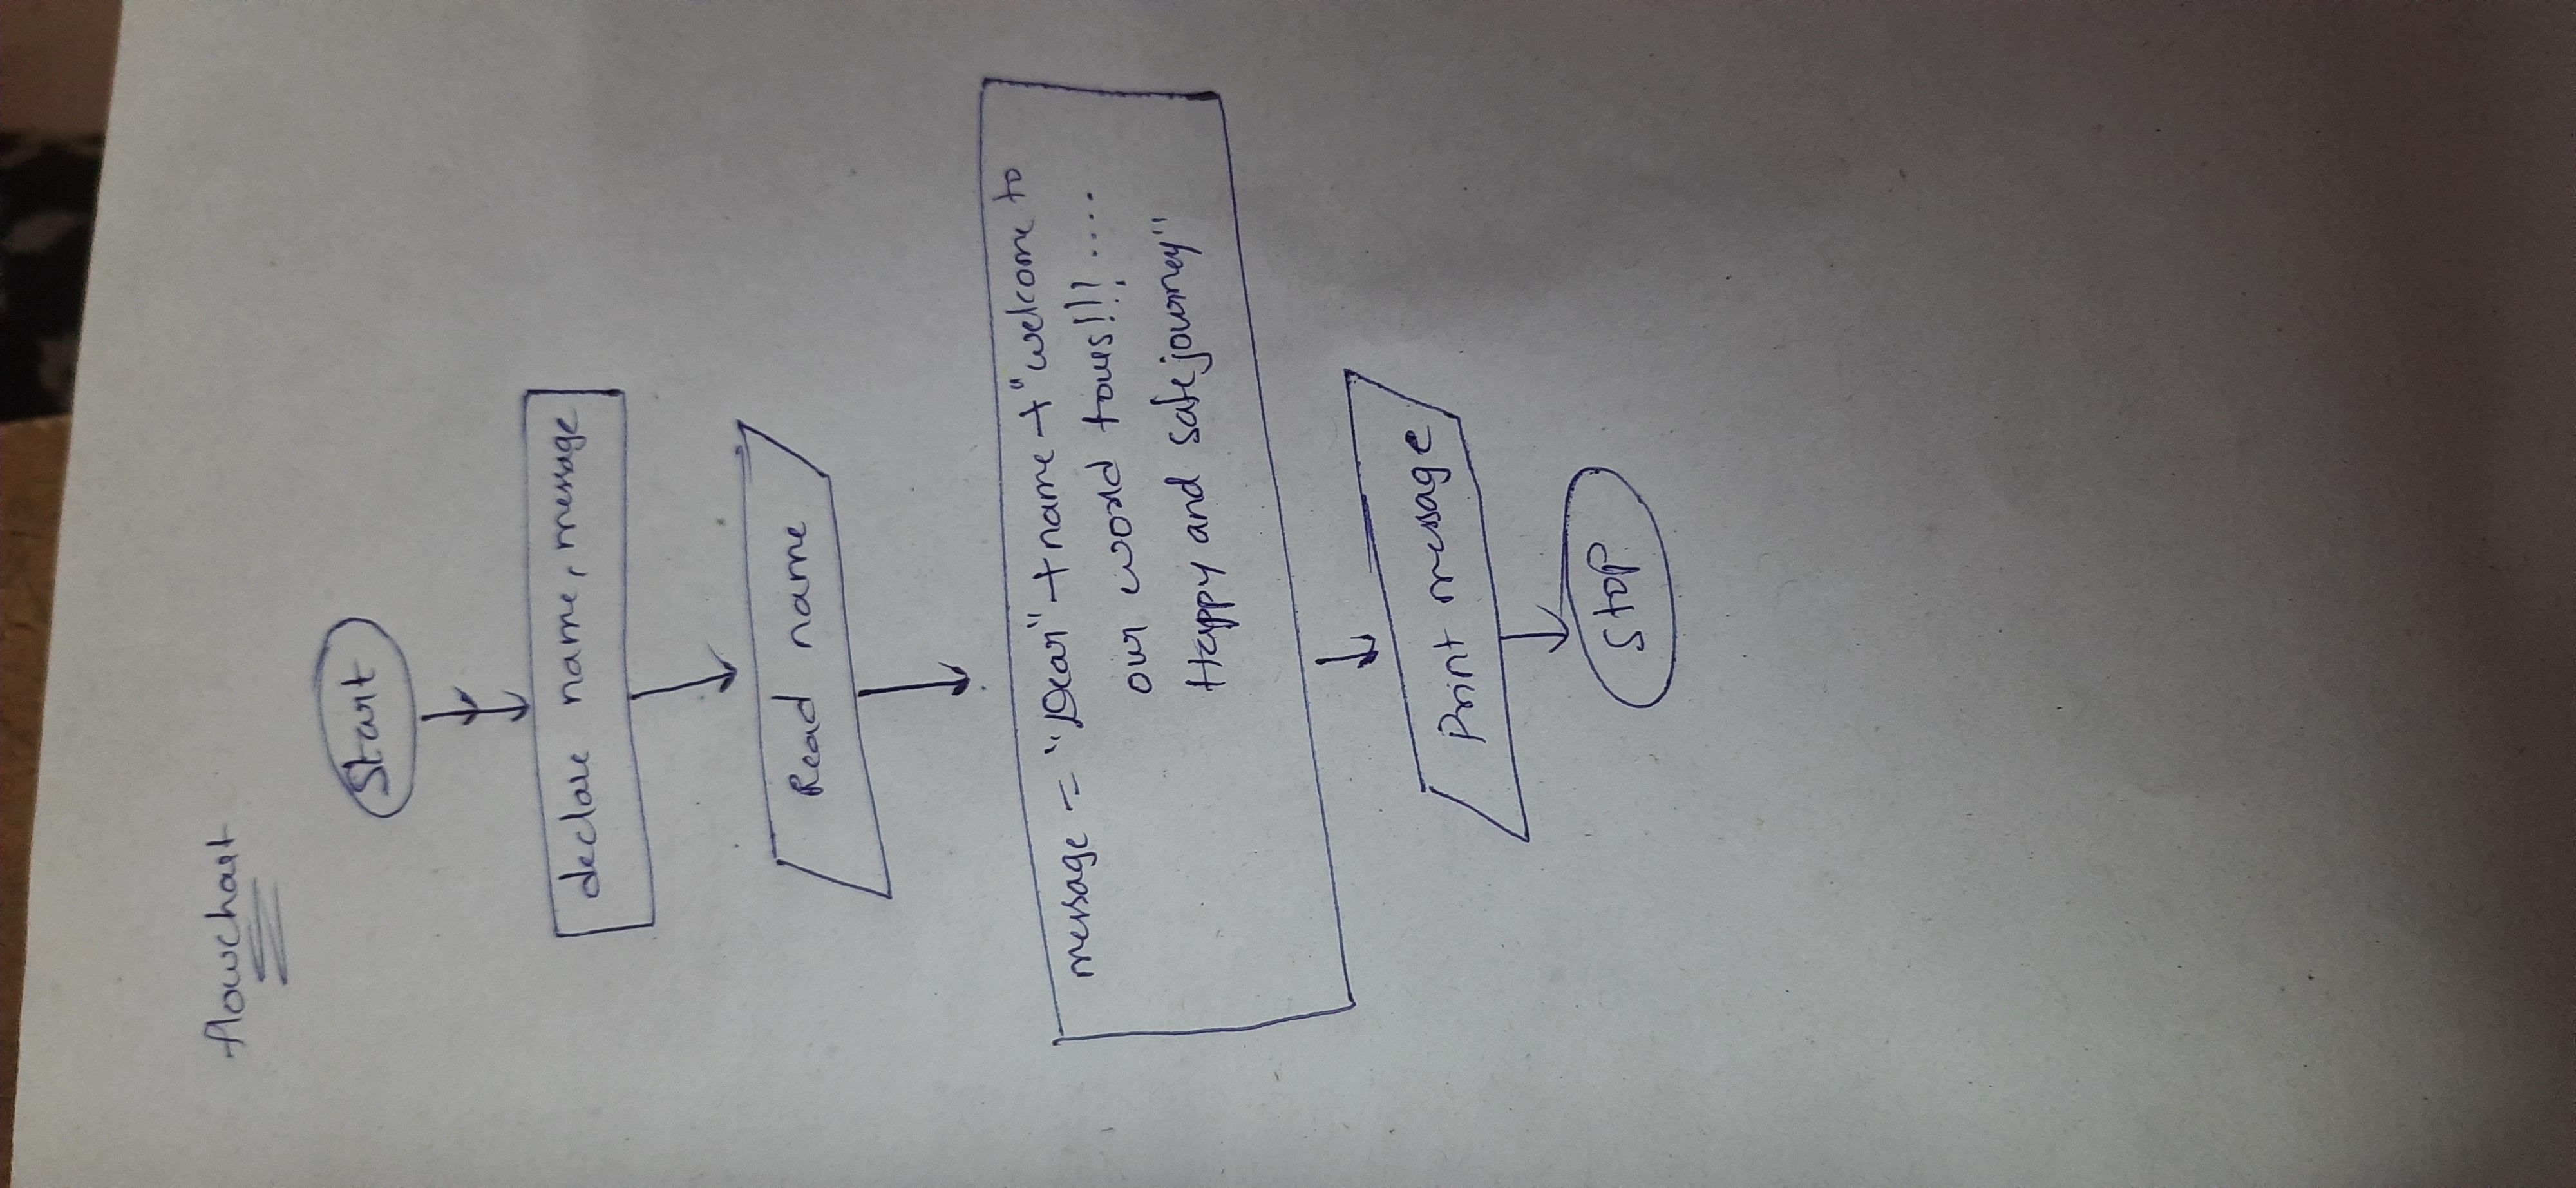 flowchart
Start
declare name, message
Read name
message = "Dear" + name + "welcome to
our world tours!!! ....
Happy and safe journey"
Print message
Stop